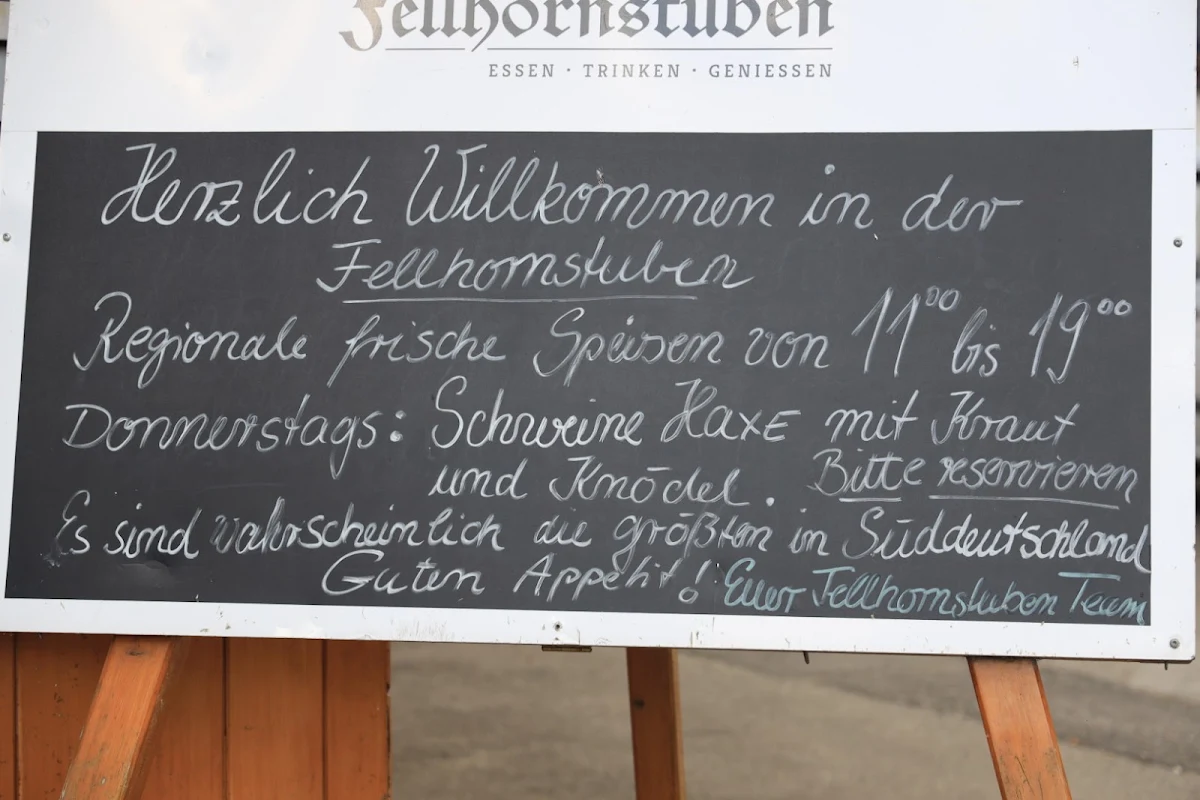 Fellhornstuben
ESSEN · TRINKEN · GENIESSEN
Herzlich Willkommen in der
Fellhornstuben
Regionale frische Speisen von 11⁰⁰ bis 19⁰⁰
Donnerstags: Schweine HaxE mit Kraut
und Knödel. Bitte reservieren
Es sind wahrscheinlich die größten in Süddeutschland
Guten Appetit! Euer Fellhornstuben Team